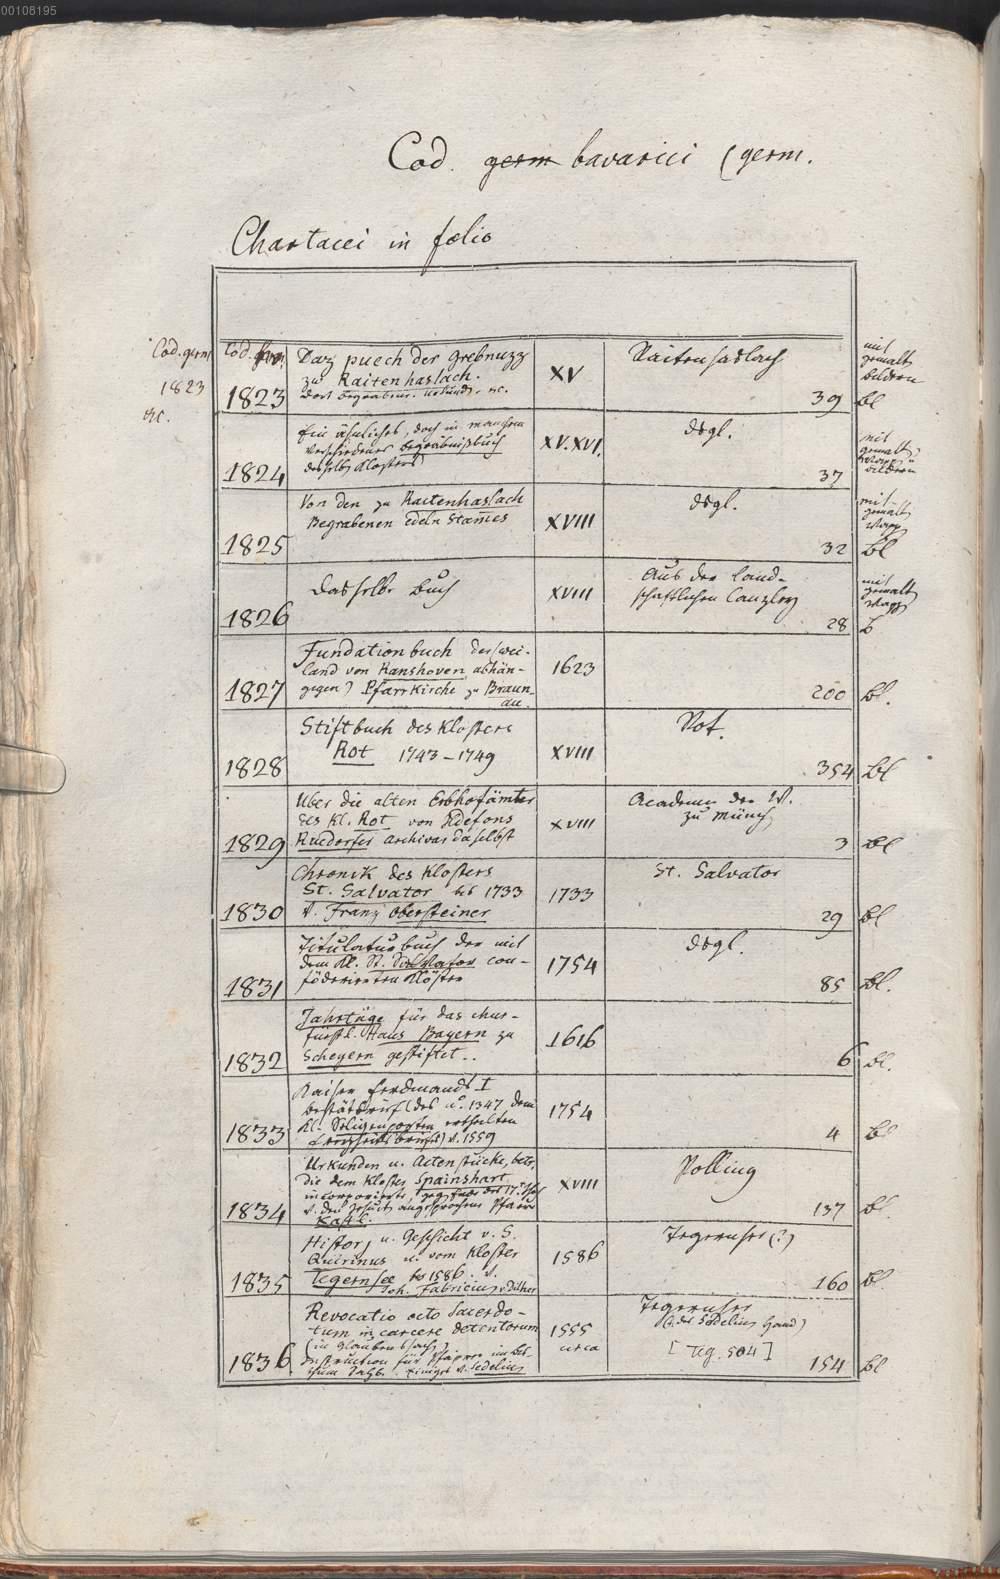 00108195
Cod. germ bavarici (germ.
Chartacei in folio
Cod. germ
1823
etc.
Cod.
1823
Daz puech der Grebnuzz
zu Raitenhaslach.
XV
Raitenhaslach
39
mit
gemalt
bildern
bl
1824
Ein ähnliches, doch in manchem
verschiedenes Begräbnißbuch
desselb. Klosters
XV. XVI.
dsgl.
37
mit
gemalt
1825
Von den zu Raitenhaslach
Begrabenen edeln Stam̄es
XVIII
dsgl.
32
mit
gemalt
Wapp
bl
1826
Dasselbe Buch
XVIII
Aus der land-
schaftlichen Canzley
28
mit
gemalt
Wapp
b
1827
Fundationbuch der (wei-
land von Ranshoven abhän-
gegen) Pfarrkirche zu Braun-
au.
1623
200
bl.
1828
Stiftbuch des Klosters
Rot 1743-1749
XVIII
Rot.
354
bl
1829
Uber die alten Erbhofämter
des Kl. Rot von Ildefons
Ruedorfer archivar daselbst
XVIII
Academie der W.
zu Münch.
3
bl
1830
Chronik des Klosters
St. Salvator bis 1733
v. Franz Obersteiner
1733
St. Salvator
29
bl
1831
Titulaturbuch der mit
dem Kl. St. Salvator con-
föderierten Klöster
1754
dsgl.
85
bl.
1832
Jahrtäge für das chur-
fürstl. Haus Bayern zu
Scheyern gestiftet..
1616
6
bl.
1833
Kaiser Ferdinands I
bestätbrief (des ao. 1347 dem
Kl. Seligenporten ertheilten
Freyheitsbriefes) v. 1559
1754
4
bl
1834
Urkunden u. Actenstücke, betr.
die dem Kloster Speinshart
incorporierte, gegen Ende des 17. Jhs
v. den Jesuit. angesprochene Pfarr
Kastl.
XVIII
Polling
137
bl.
1835
Histori u. Geschicht v. S.
Quirinus u. vom Kloster
Tegernsee bis 1586. v.
Joh. Fabricius
1586
Tegernsee (?)
160
bl
1836
Revocatio octo Sacerdo-
tum in carcere detentorum
(in Glaubenssach.)
Instruction für
Einiges v. Sedelius
1555
circa
Tegernsee
(v. des Sedelius Hand)
[Teg. 504]
154
bl